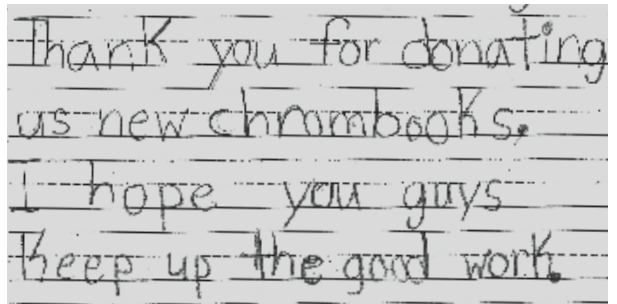 Thank you for donating
us new chrombooks.
I hope you guys
keep up the good work.